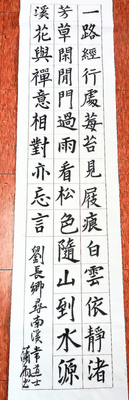 一路經行處莓苔見屐痕白雲依靜渚
芳草閉閒門過雨看松色隨山到水源
溪花與禪意相對亦忘言
劉長卿尋南溪常道士